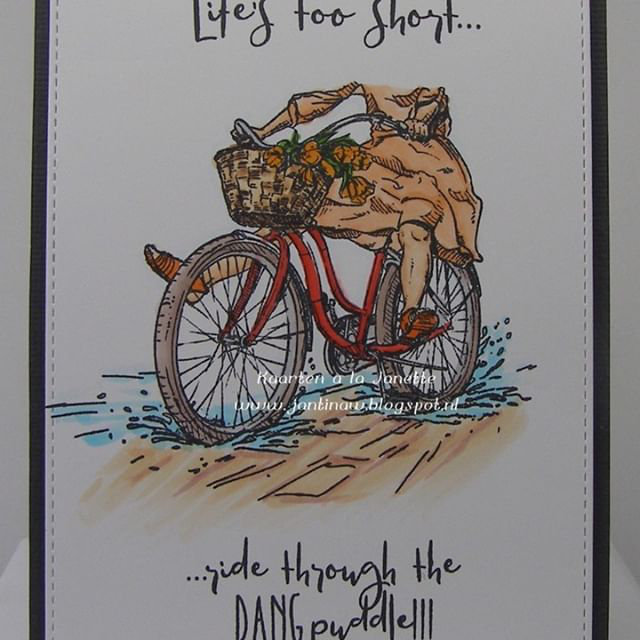 Life's too short...
Kaarten a la Janette
www.jantinaw.blogspot.nl
...ride through the
DANG puddle!!!